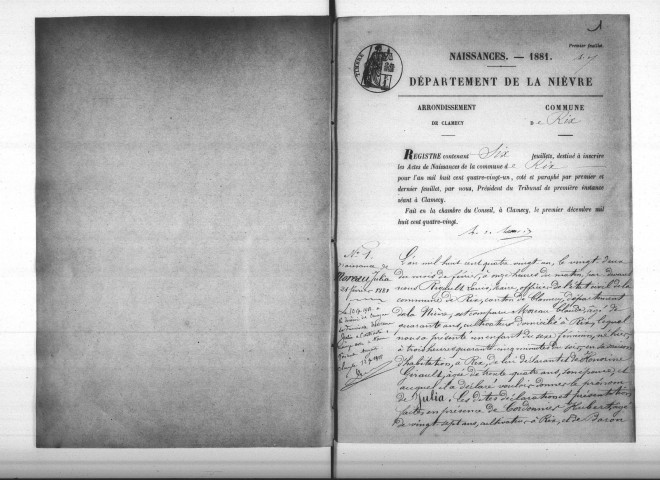 Premier feuillet.
NAISSANCES. — 1881.
TIMBRE
DÉPARTEMENT DE LA NIÈVRE
ARRONDISSEMENT
DE CLAMECY
COMMUNE
De Rix
REGISTRE contenant Six feuillets, destiné à inscrire
les Actes de Naissances de la commune de Rix
pour l'an mil huit cent quatre-vingt-un, coté et paraphé par premier et
dernier feuillet, par nous, Président du Tribunal de première instance
séant à Clamecy.
Fait en la chambre du Conseil, à Clamecy, le premier décembre mil
huit cent quatre-vingt.
N° 1.
Naissance de
Moreau Julia
21 février 1881
L'an mil huit cent quatre vingt un, le vingt deux
du mois de février, à onze heures du matin, par devant
nous Rigault Louis, maire, officier de l'état civil de la
commune de Rix, canton de Clamecy, département
de la Nièvre, est comparu Moreau Claude, âgé de
quarante ans, cultivateur domicilié à Rix, lequel
nous a présenté un enfant du sexe féminin, né hier
à trois heures quarante cinq minutes du soir, en sa maison
d'habitation, à Rix, de lui déclarant et de Honorine
Girault, âgée de trente quatre ans, son épouse, et
auquel il a déclaré vouloir donner le prénom
de Julia. Les dites déclaration et présentation
faites en présence de Cordonnier Hubert, âgé
de vingt sept ans, cultivateur à Rix, et de Baron